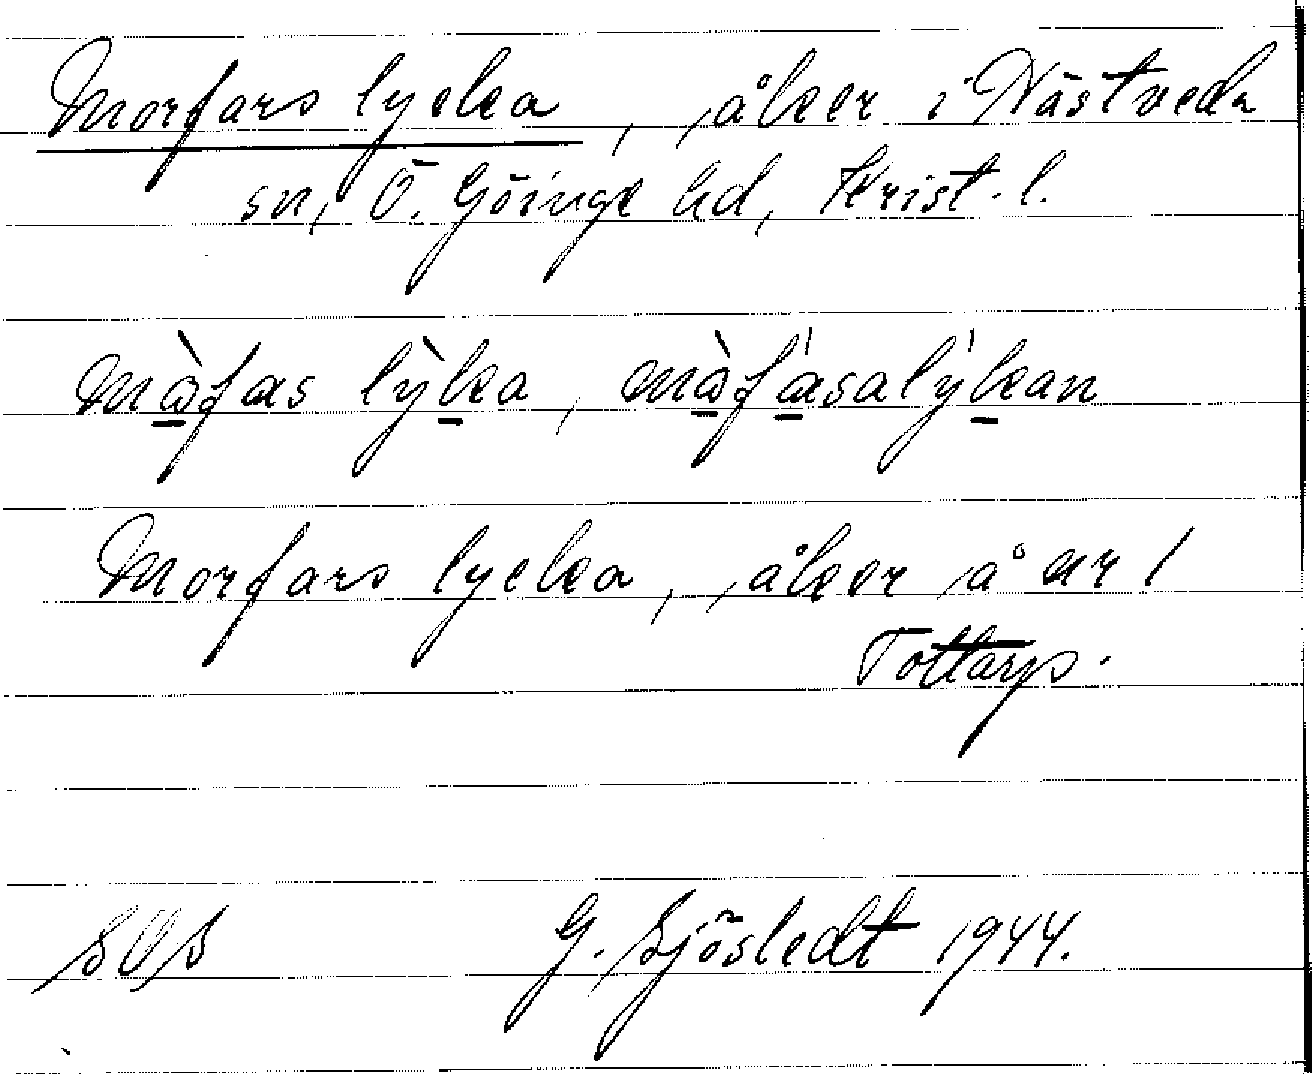 Morfars lycka, ,åker i Hästveda
sn, Ö. Göinge hd, Krist. l.
mòfas lỳka, mòfásalýkan
Morfars lycka, ,åker å nr 1
Tottarp.
SOS G. Sjöstedt 1944.